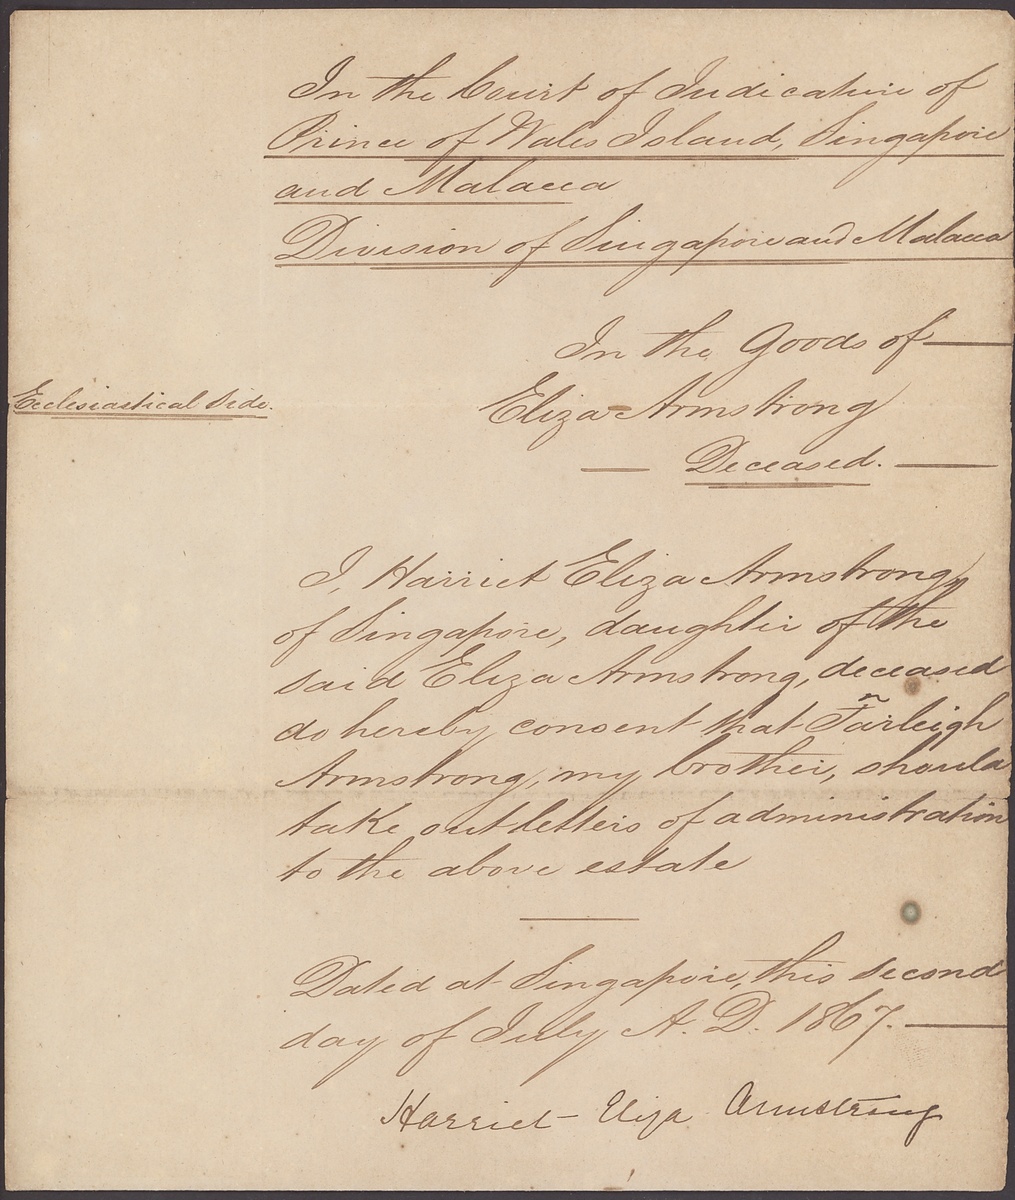 In the Court of Judicature of
Prince of Wales Island, Singapore
and Malacca
Division of Singapore and Malacca
In the Goods of
Ecclesiastical Side.
Eliza Armstrong
Deceased.
I, Harriet Eliza Armstrong,
of Singapore, daughter of the
said Eliza Armstrong, deceased
do hereby consent that Fairleigh
Armstrong, my brother, should
take out letters of administration
to the above estate
Dated at Singapore, this second
day of July A. D. 1867.
Harriet Eliza Armstrong